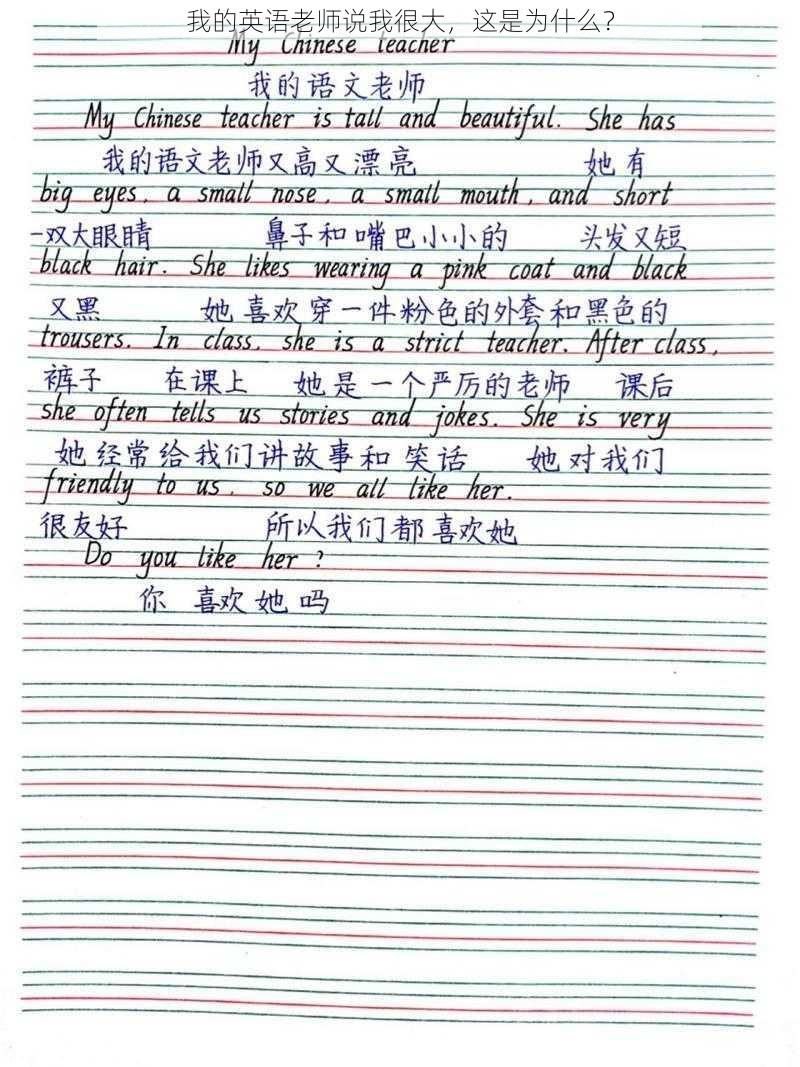 我的英语老师说我很大，这是为什么？
My Chinese teacher
我的语文老师
My Chinese teacher is tall and beautiful. She has
我的语文老师又高又漂亮 她有
big eyes, a small nose, a small mouth, and short
一双大眼睛 鼻子和嘴巴小小的 头发又短
black hair. She likes wearing a pink coat and black
又黑 她喜欢穿一件粉色的外套和黑色的
trousers. In class, she is a strict teacher. After class,
裤子 在课上 她是一个严厉的老师 课后
she often tells us stories and jokes. She is very
她经常给我们讲故事和笑话 她对我们
friendly to us, so we all like her.
很友好 所以我们都喜欢她
Do you like her?
你喜欢她吗